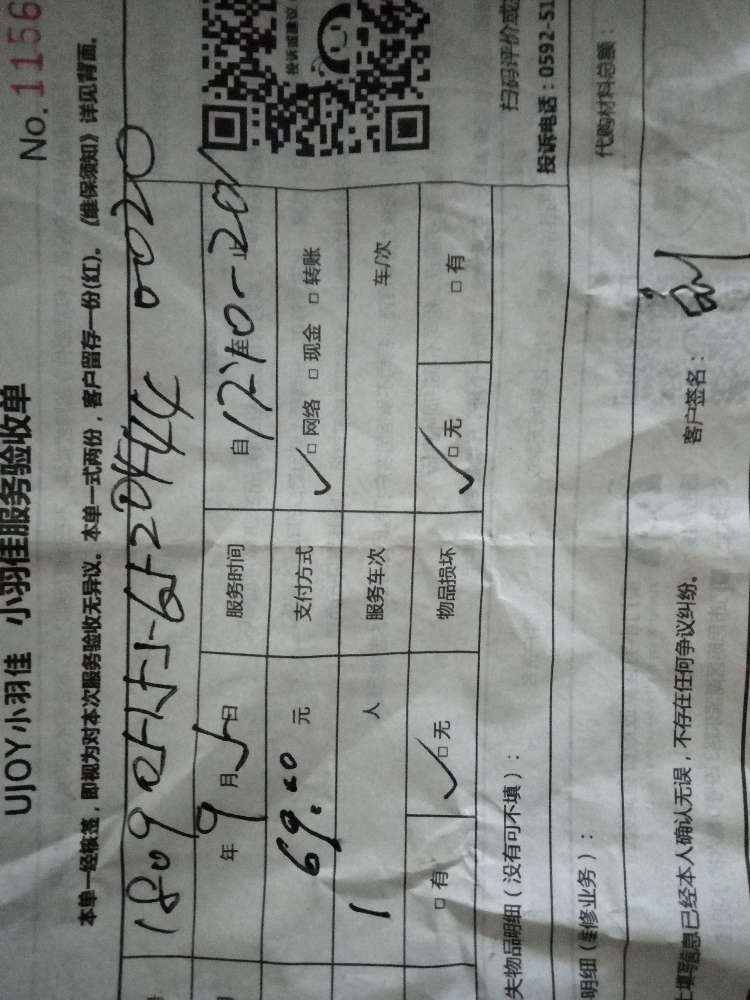 No.1156
UJOY小羽佳 小羽佳服务验收单
本单一经核签，即视为对本次服务验收无异议。本单一式两份，客户留存一份(红)。《维保须知》详见背面。
0020
年 9 月 5 日 服务时间 自 至 止
69.00 元 支付方式 ✓□ 网络 □ 现金 □ 转账
1 人 服务车次 车/次
□ 有 ✓□ 无 物品损坏 ✓□ 无 □ 有
失物品明细（没有可不填）：
投诉或建议
扫码评价或
投诉电话：0592-51
明细（维修业务）：
代购材料总额：
填写信息已经本人确认无误，不存在任何争议纠纷。 客户签名：